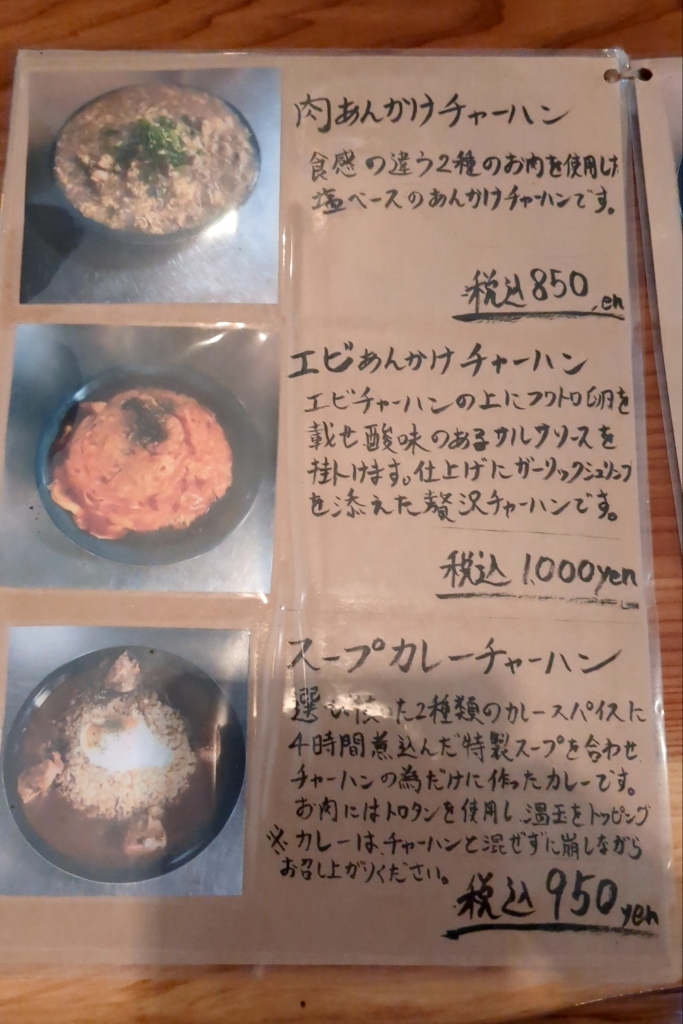 肉あんかけチャーハン
食感の違う2種のお肉を使用した
塩ベースのあんかけチャーハンです。
税込850yen
エビあんかけチャーハン
エビチャーハンの上にフワトロ卵を
載せ酸味のあるサルサソースを
掛けます。仕上げにガーリックシュリンプ
を添えた贅沢チャーハンです。
税込 1.000yen
スープカレーチャーハン
選び抜いた2種類のカレースパイスに
4時間煮込んだ特製スープを合わせ
チャーハンの為だけに作ったカレーです。
お肉にはトロタンを使用し、温玉をトッピング
※カレーは、チャーハンと混ぜずに崩しながら
お召し上がりください。
税込950yen